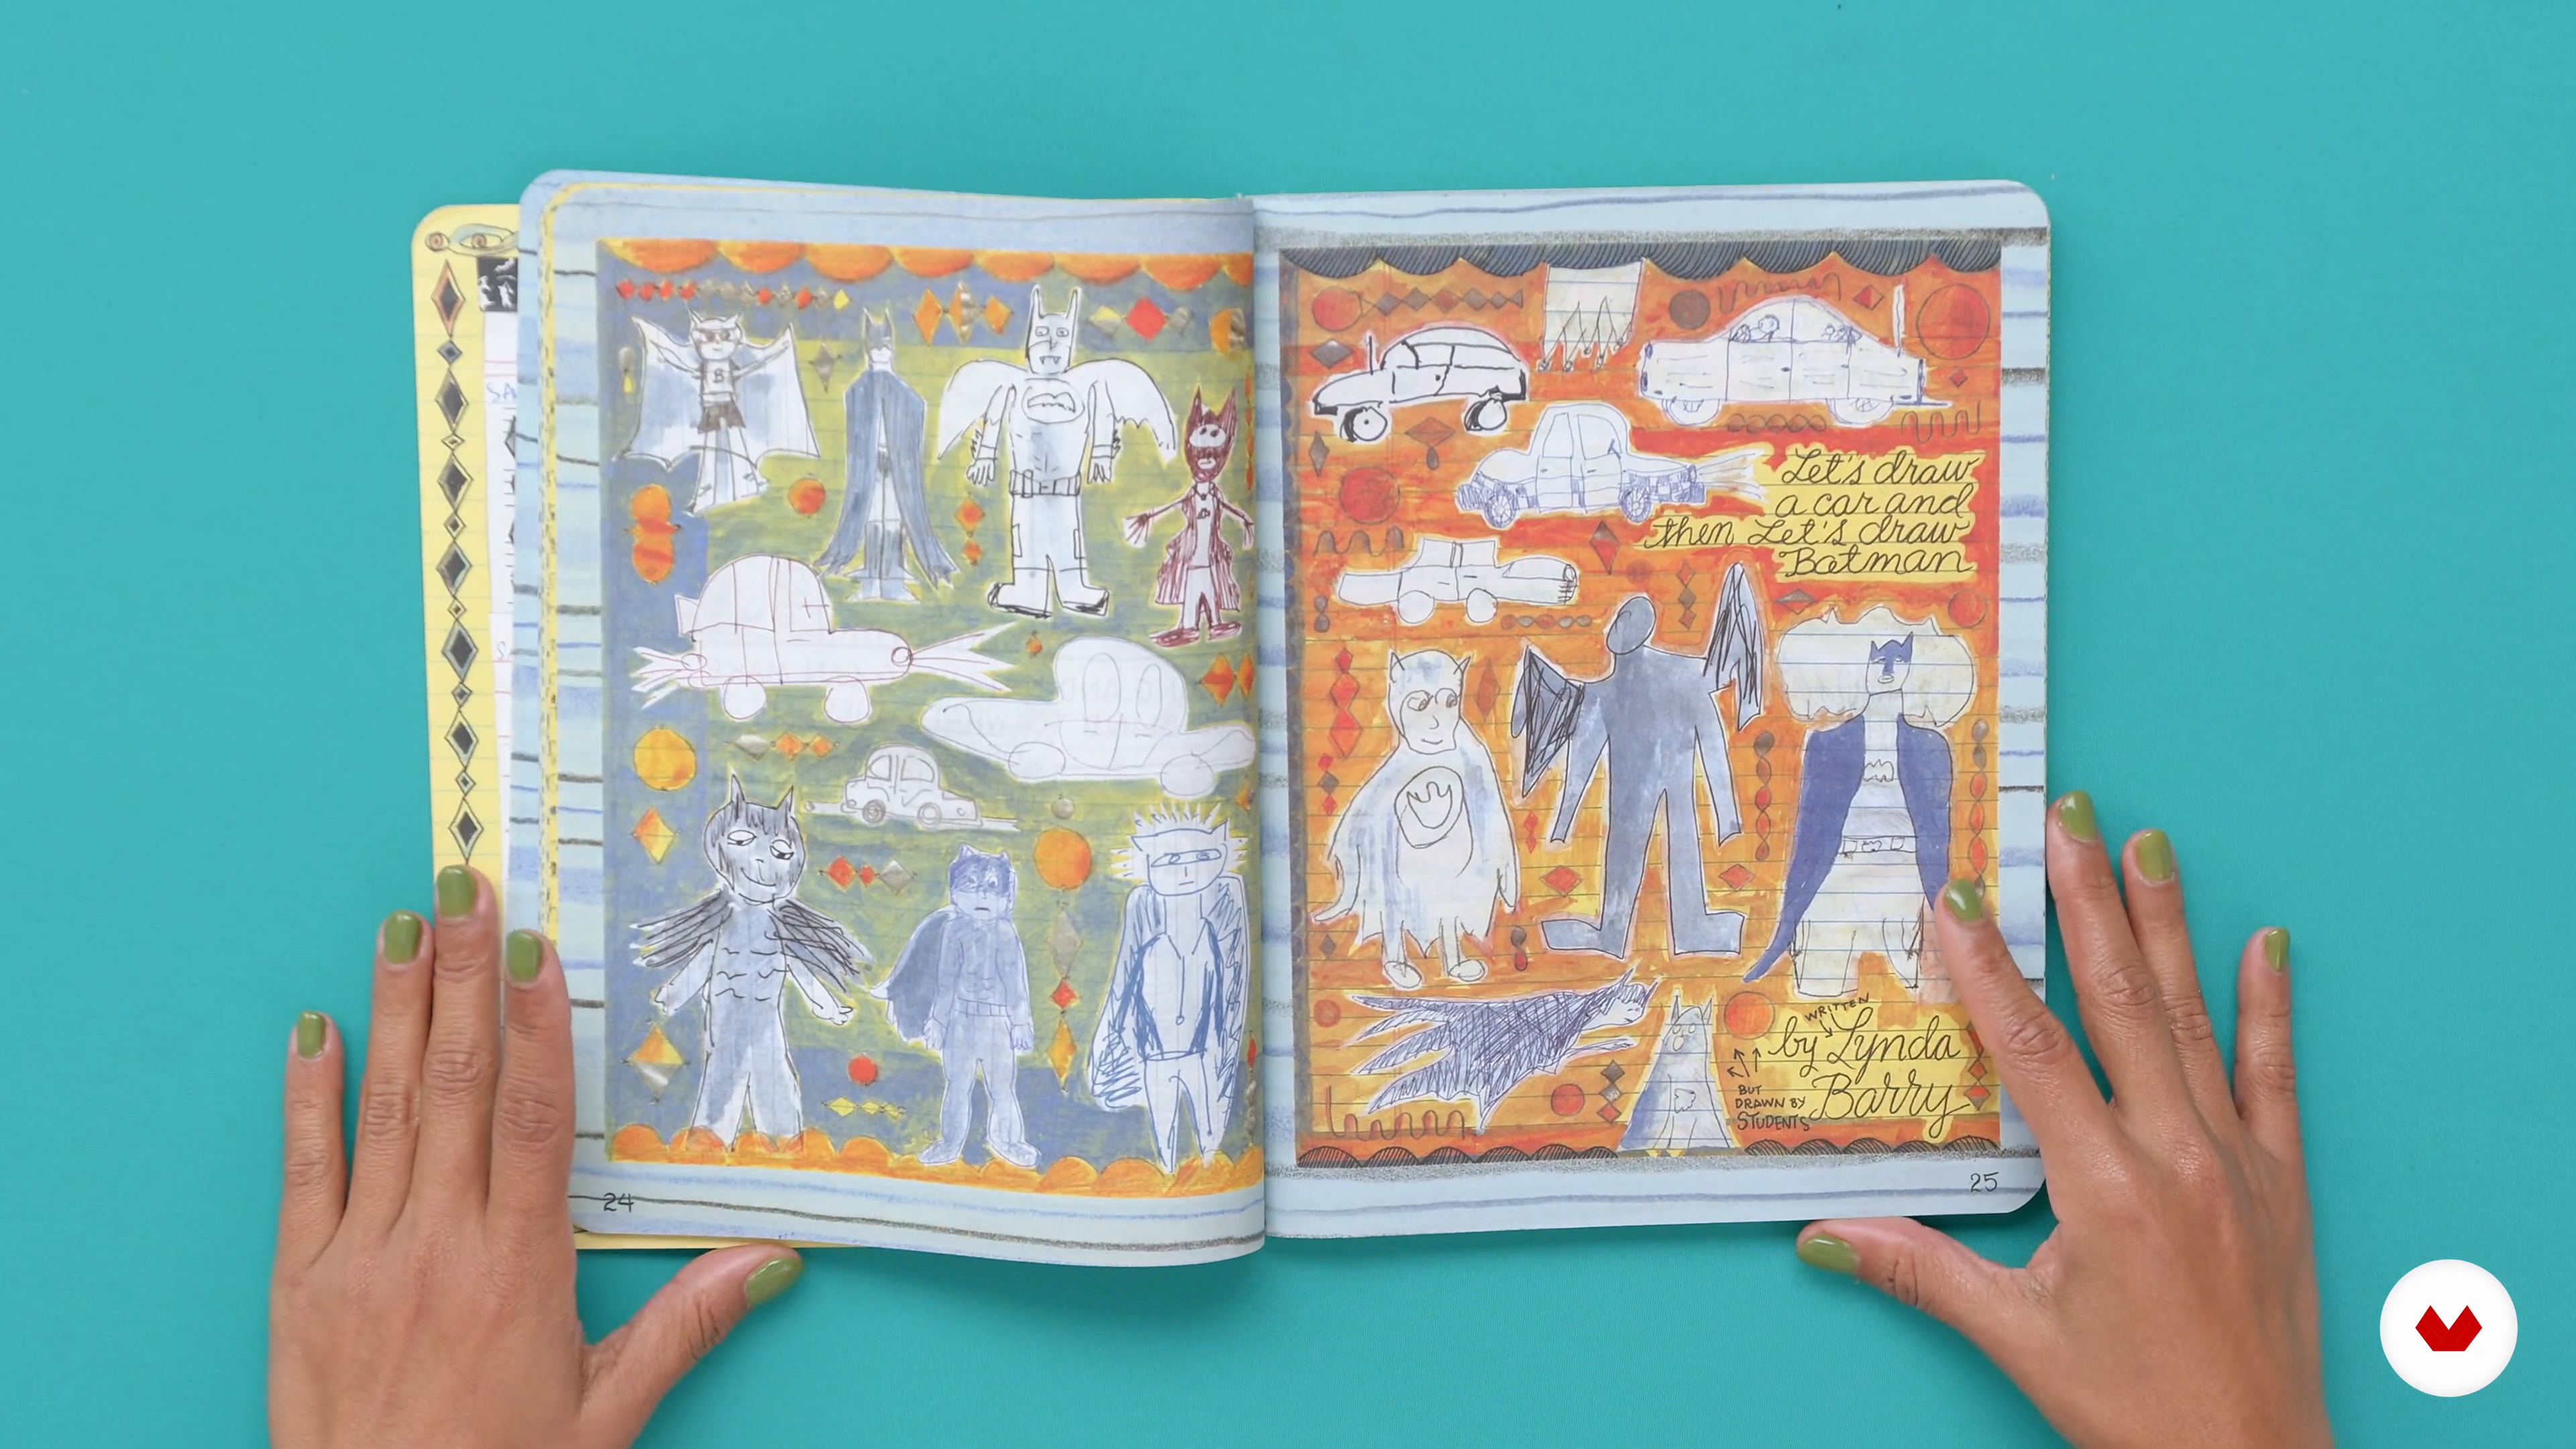 SA
B
24
Let's draw
a car and
then Let's draw
Batman
WRITTEN
by Lynda
Barry
BUT
DRAWN BY
STUDENTS
25